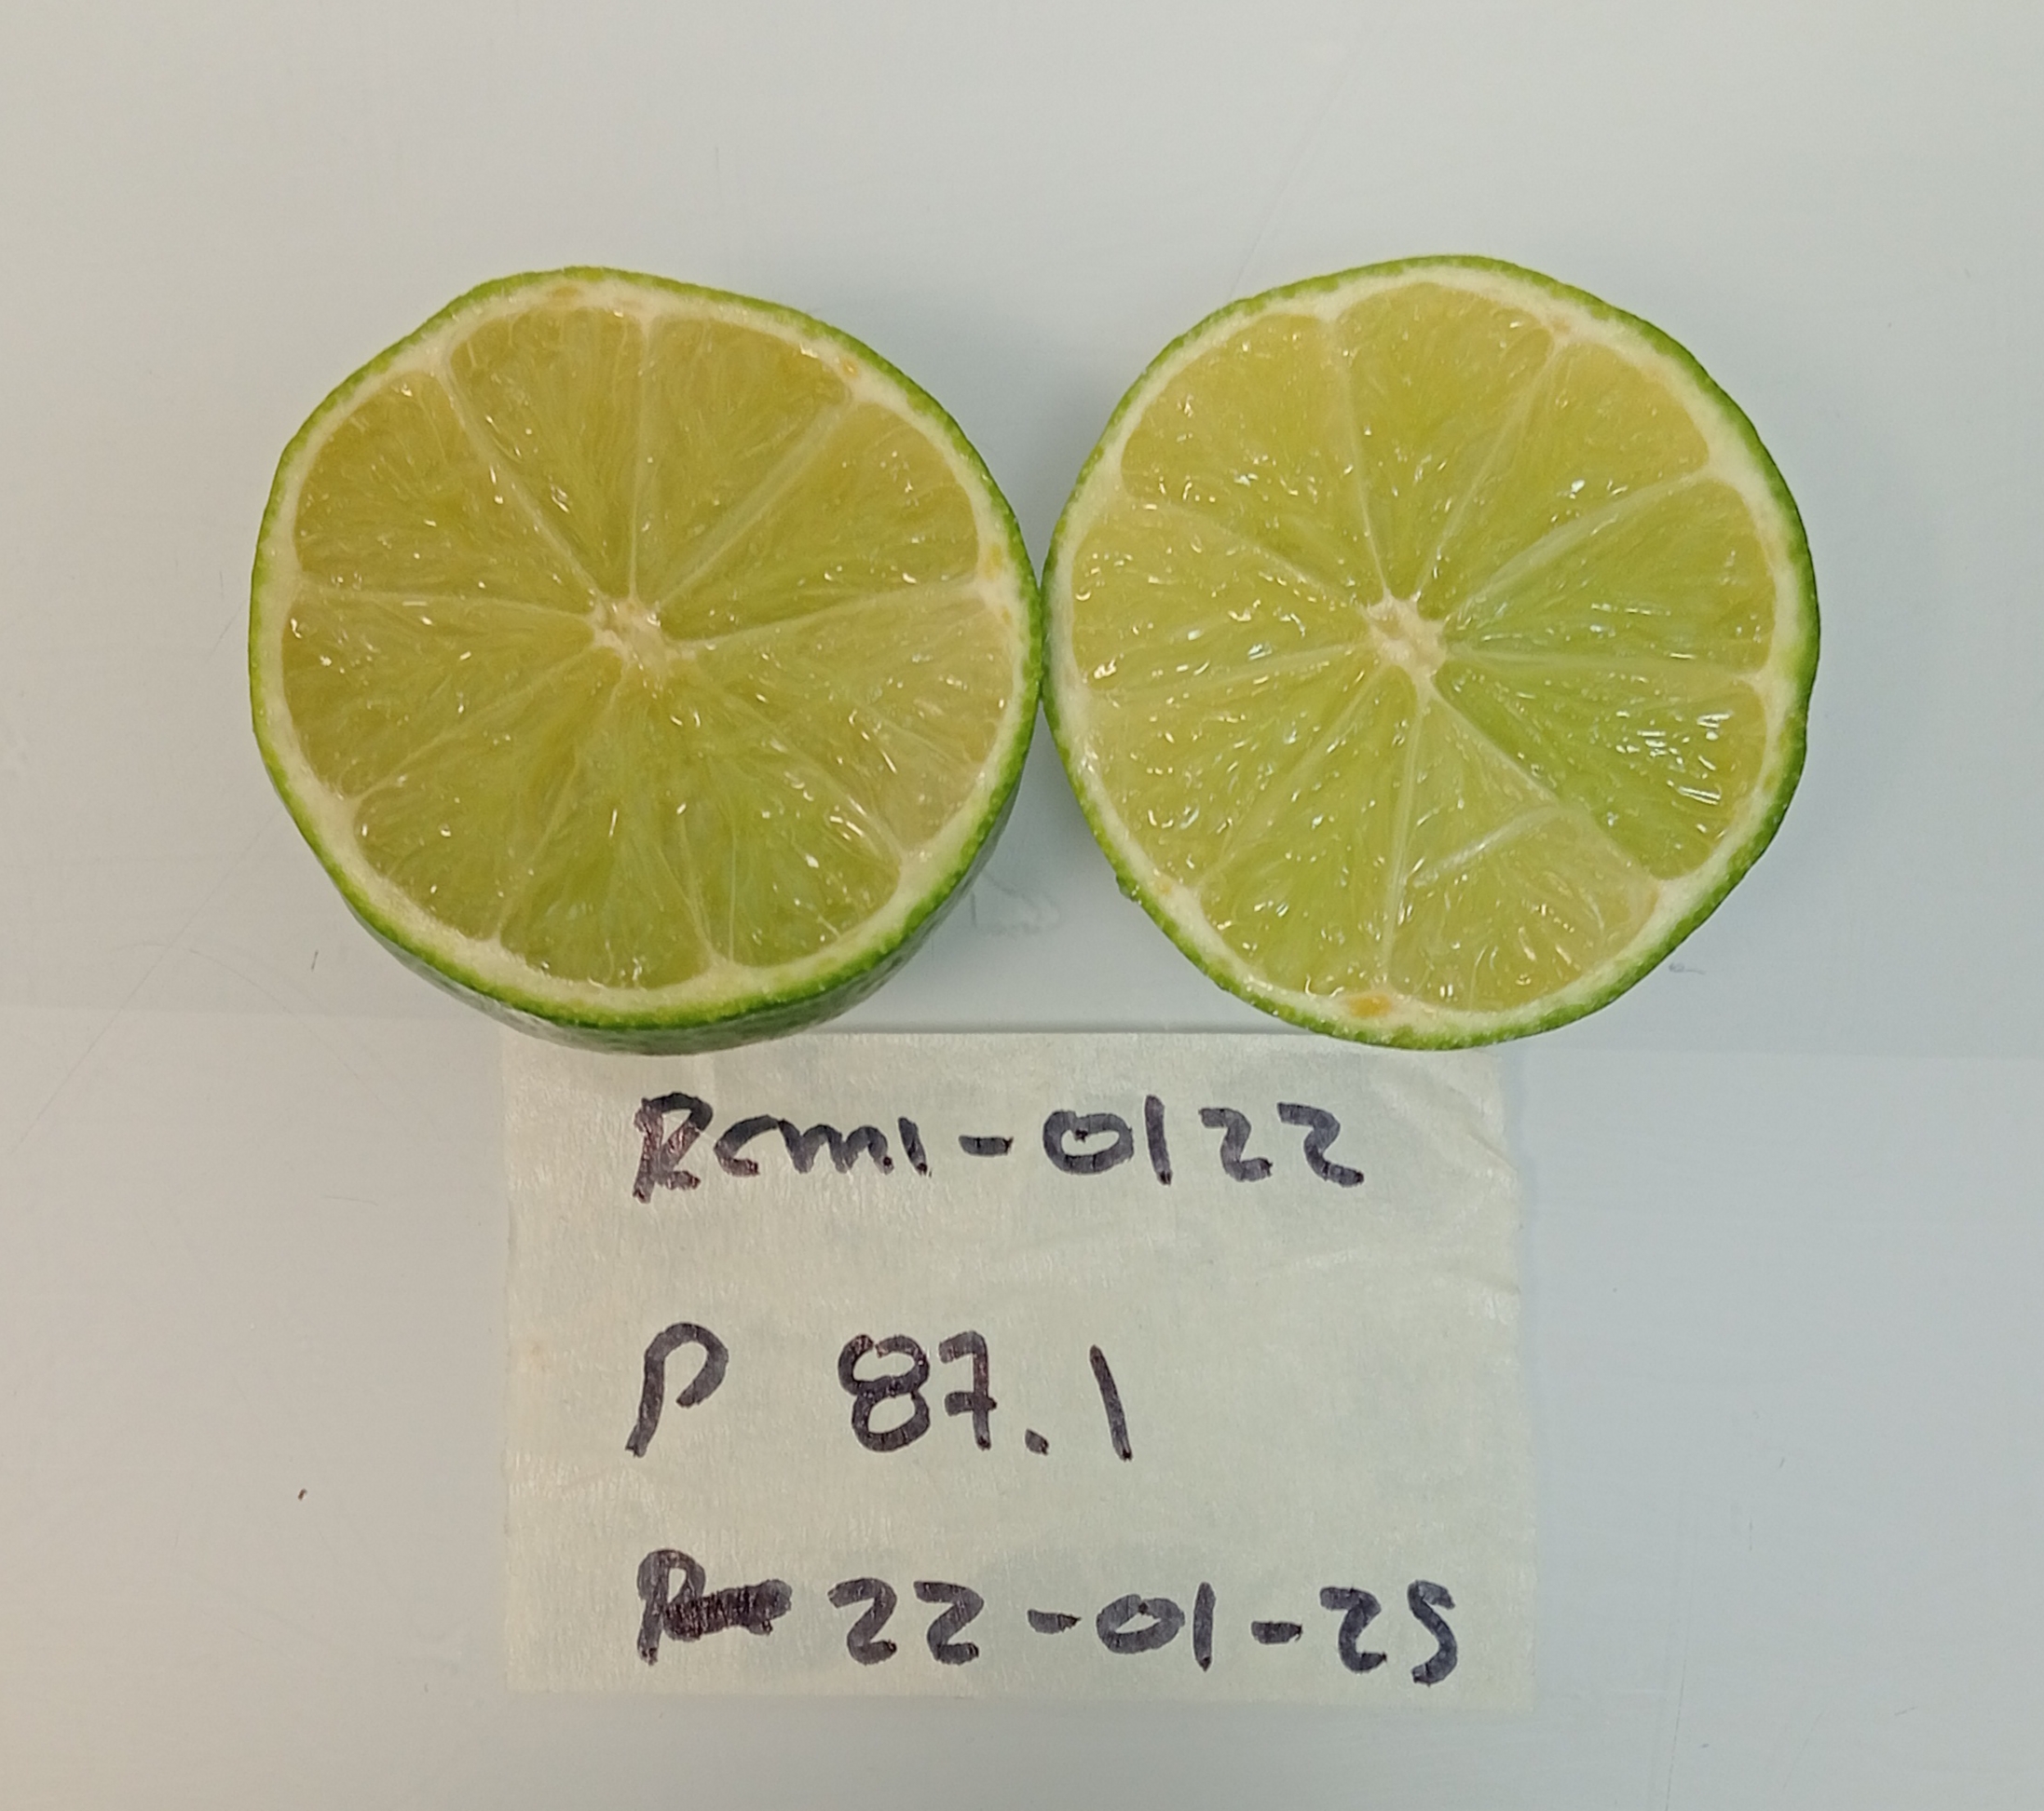 Rcm1-0122
P 87.1
22-01-25